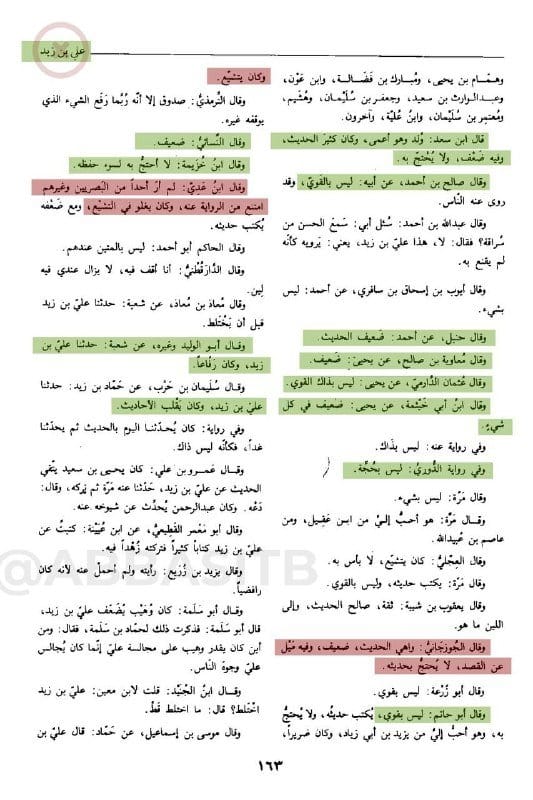 علي بن زيد
وهمَّام بن يحيى، ومُبارك بن فَضَالة، وابن عَوْن،
وعبدالوارث بن سعيد، وجعفر بن سُلَيْمان، وهُشَيم،
ومُعتمر بن سُلَيْمان، وابنُ عُلَيَّة، وآخرون.
قال ابن سعد: وُلد وهو أعمى، وكان كثيرَ الحديث،
وفيه ضَعْف، ولا يُحْتجُّ به.
وقال صالح بن أحمد، عن أبيه: ليس بالقويِّ، وقد
روى عنه النَّاس.
وقال عبدالله بن أحمد: سُئل أبي: سَمِعَ الحسن من
سُراقة؟ فقال: لا، هذا عليّ بن زيد، يعني: يَرويه كأنَّه
لم يقنع به.
وقال أيوب بن إسحاق بن سافري، عن أحمد: ليس
بشيء.
وقال حنبل، عن أحمد: ضَعيف الحديث.
وقال مُعاوية بن صالح، عن يحيى: ضَعيف.
وقال عُثمان الدَّارميّ، عن يحيى: ليس بذاك القوي.
وقال ابنُ أبي خَيْثمة، عن يحيى: ضعيف في كل
شيءٍ.
وفي رواية عنه: ليس بذَاك.
وفي رواية الدُّوريّ: ليس بحُجَّة.
وقال مَرَّة: ليس بشيء.
وقال مَرَّة: هو أحبُّ إليَّ من ابن عَقِيل، ومن
عاصم بن عُبيدالله.
وقال العِجْليُّ: كان يتشيَّع، لا بأس به.
وقال مَرَّة: يكتب حديثه، وليس بالقوي.
وقال يعقوب بن شيبة: ثقة، صالح الحديث، وإلى
اللين ما هو.
وقال الجُوزجانيُّ: واهي الحديث، ضعيف، وفيه مَيْل
عن القصد، لا يُحتجُّ بحديثه.
وقال أبو زُرْعة: ليس بقوي.
وقال أبو حاتم: ليس بقوي، يُكتب حديثُه، ولا يُحتجُّ
به، وهو أحبُّ إليَّ من يزيد بن أبي زياد، وكان ضَريراً،
وكان يتشيَّع.
وقال التِّرمذيُّ: صدوق إلا أنَّه رُبَّما رَفَع الشيء الذي
يوقفه غيره.
وقال النَّسائيُّ: ضَعيف.
وقال ابنُ خُزيمة: لا أحتجُّ به لسوء حفظه.
وقال ابنُ عَدِيّ: لم أرَ أحداً من البَصريين وغيرهم
امتنع من الرواية عنه، وكان يغلو في التشيُّع، ومع ضَعْفه
يُكتب حديثه.
وقال الحاكم أبو أحمد: ليس بالمتين عندهم.
وقال الدَّارَقُطْنيُّ: أنا أقف فيه، لا يزال عندي فيه
لِين.
وقال مُعاذ بن مُعاذ، عن شعبة: حدثنا عليّ بن زيد
قبل أن يَخْتَلط.
وقال أبو الوليد وغيره، عن شعبة: حدثنا علي بن
زيد، وكان رَفَّاعاً.
وقال سُلَيْمان بن حَرْب، عن حَمَّاد بن زيد: حدثنا
علي بن زيد، وكان يَقْلب الأحاديث.
وفي رواية: كان يُحَدِّثنا اليوم بالحديث ثم يحدِّثنا
غداً، فكأنَّه ليس ذاك.
وقال عَمرو بن علي: كان يحيى بن سعيد يتَّقي
الحديث عن عليّ بن زيد، حَدَّثنا عنه مَرَّة ثم تَركه، وقال:
دَعْه. وكان عبدالرحمن يُحدِّث عن شيوخه عنه.
وقال أبو مَعْمر القَطِيعيُّ، عن ابن عُيَيْنة: كتبتُ عن
علي بن زيد كتاباً كثيراً فتركته زُهْداً فيه.
وقال يزيد بن زُرَيع: رأيته ولم أحملْ عنه لأنه كان
رافضياً.
وقال أبو سَلَمة: كان وُهَيْب يُضَعِّف علي بن زيد،
قال أبو سَلَمة: فذكرت ذلك لحمَّاد بن سَلَمة، فقال: ومن
أين كان يقدر وهيب على مجالسة علي إنَّما كان يُجالس
علي وجوهَ النَّاس.
وقال ابنُ الجُنَيْد: قلت لابن معين: علي بن زيد
اخْتَلط؟ قال: ما اختلط قَطُّ.
وقال موسى بن إسماعيل، عن حَمَّاد: قال عليّ بن
١٦٣